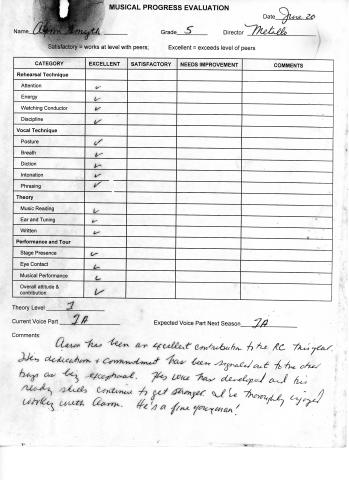 MUSICAL PROGRESS EVALUATION
Date June 20
Name Aaron Smyth Grade 5 Director
Satisfactory = works at level with peers; Excellent = exceeds level of peers
CATEGORY EXCELLENT SATISFACTORY NEEDS IMPROVEMENT COMMENTS
Rehearsal Technique
Attention ✓
Energy ✓
Watching Conductor ✓
Discipline ✓
Vocal Technique
Posture ✓
Breath ✓
Diction ✓
Intonation ✓
Phrasing ✓
Theory
Music Reading ✓
Ear and Tuning ✓
Written ✓
Performance and Tour
Stage Presence ✓
Eye Contact ✓
Musical Performance ✓
Overall attitude &
contribution ✓
Theory Level
Current Voice Part Expected Voice Part Next Season
Comments
Aaron has been an excellent contribution to the RC this year.
His dedication & commitment has been signaled out to the other
boys as being exceptional. His voice has developed and his
ready skills continue to get stronger. I've thoroughly enjoyed
working with Aaron. He's a fine young man!